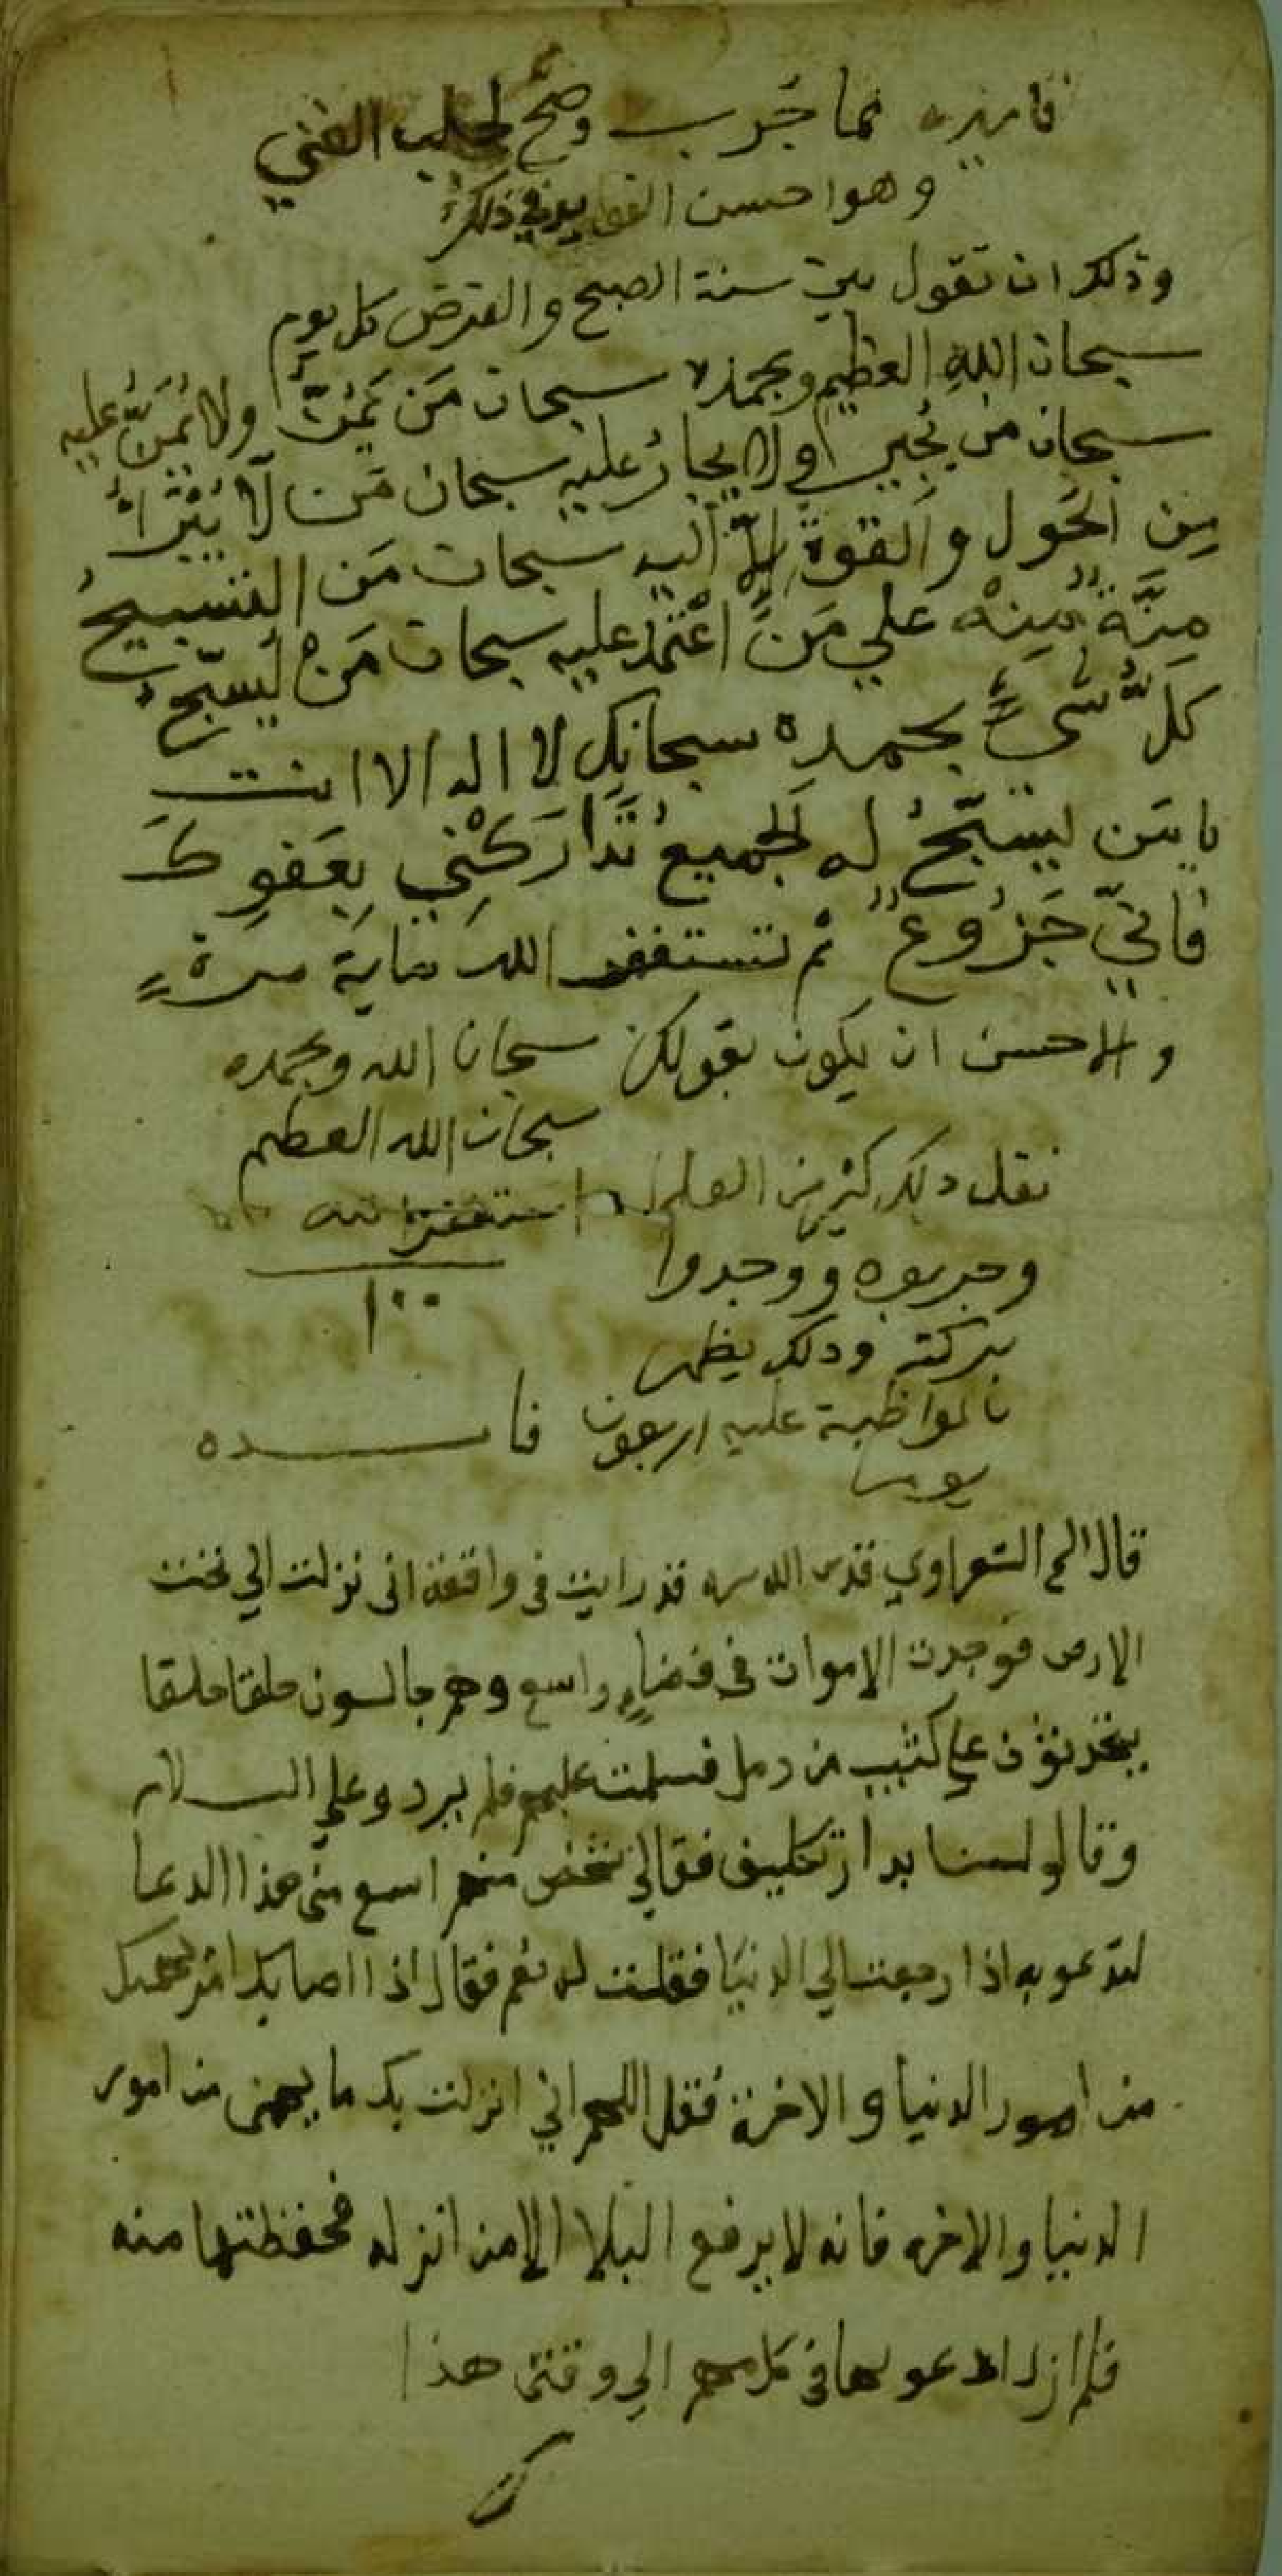 فايده مما جُرب وصح لجلب الغني
وهوا حسن الطريق في ذلك
وذلك ان تقول بين سنة الصبح والفرض كل يوم
سبحان اللهِ العظيم وبحمده سبحان مَن يَمُنّ ولا يُمَنُّ عليه
سبحان من يُجير ولا يجارُ عليه سبحان مَن لَا يُبْرَاُ
مِن الحَول والقوةِ الّا اليه سبحان مَن التسبيحُ
مِنَّةٌ مِنهْ علي مَن اعْتَمَدَ عليه سبحان مَنْ يُسبّحُ
كلُّ شَيءٍ بحمدهِ سبحانك لا اله الا انت
يا مَن يُسَبّحُ له الجميعُ تَدَارَكْنِي بِعَفوِكَ
فَانّي جَزُوعٌ ثم تستغفر الله ماية مرةٍ
والاحسن ان يكون بقولك سبحان الله وبحمده
سبحان الله العظيم
استغفر الله
١٠٠
نقل ذلك كثير من العلما
وجربوه ووجدوا
بركته وذلك يظهر
بالمواظبة عليه اربعون
يوما
فايده
قال الشعراوي قدس الله سره قد رايت في واقعة اني نزلت الي تحت
الارض فوجدت الاموات في فضاءٍ واسع وهم جالسون حلقا حلقا
يتحدثون علي كثيب من رمل فسلمت عليهم فلم يردو علي السلام
وقالو لسنا بدار تكليف فقال لي شخص منهم اسمع مني هذا الدعا
لتدعو به اذا رجعت الي الدنيا فقلت له نعم فقال اذا اصابك امر يهمك
من امور الدنيا والاخرة فقل اللهم اني انزلت بك ما يهمني من امور
الدنيا والاخره فانه لا يرفع البلا الا من انزله فحفظتها منه
فلم ازل ادعو بها في كل مهم الي وقتي هذا